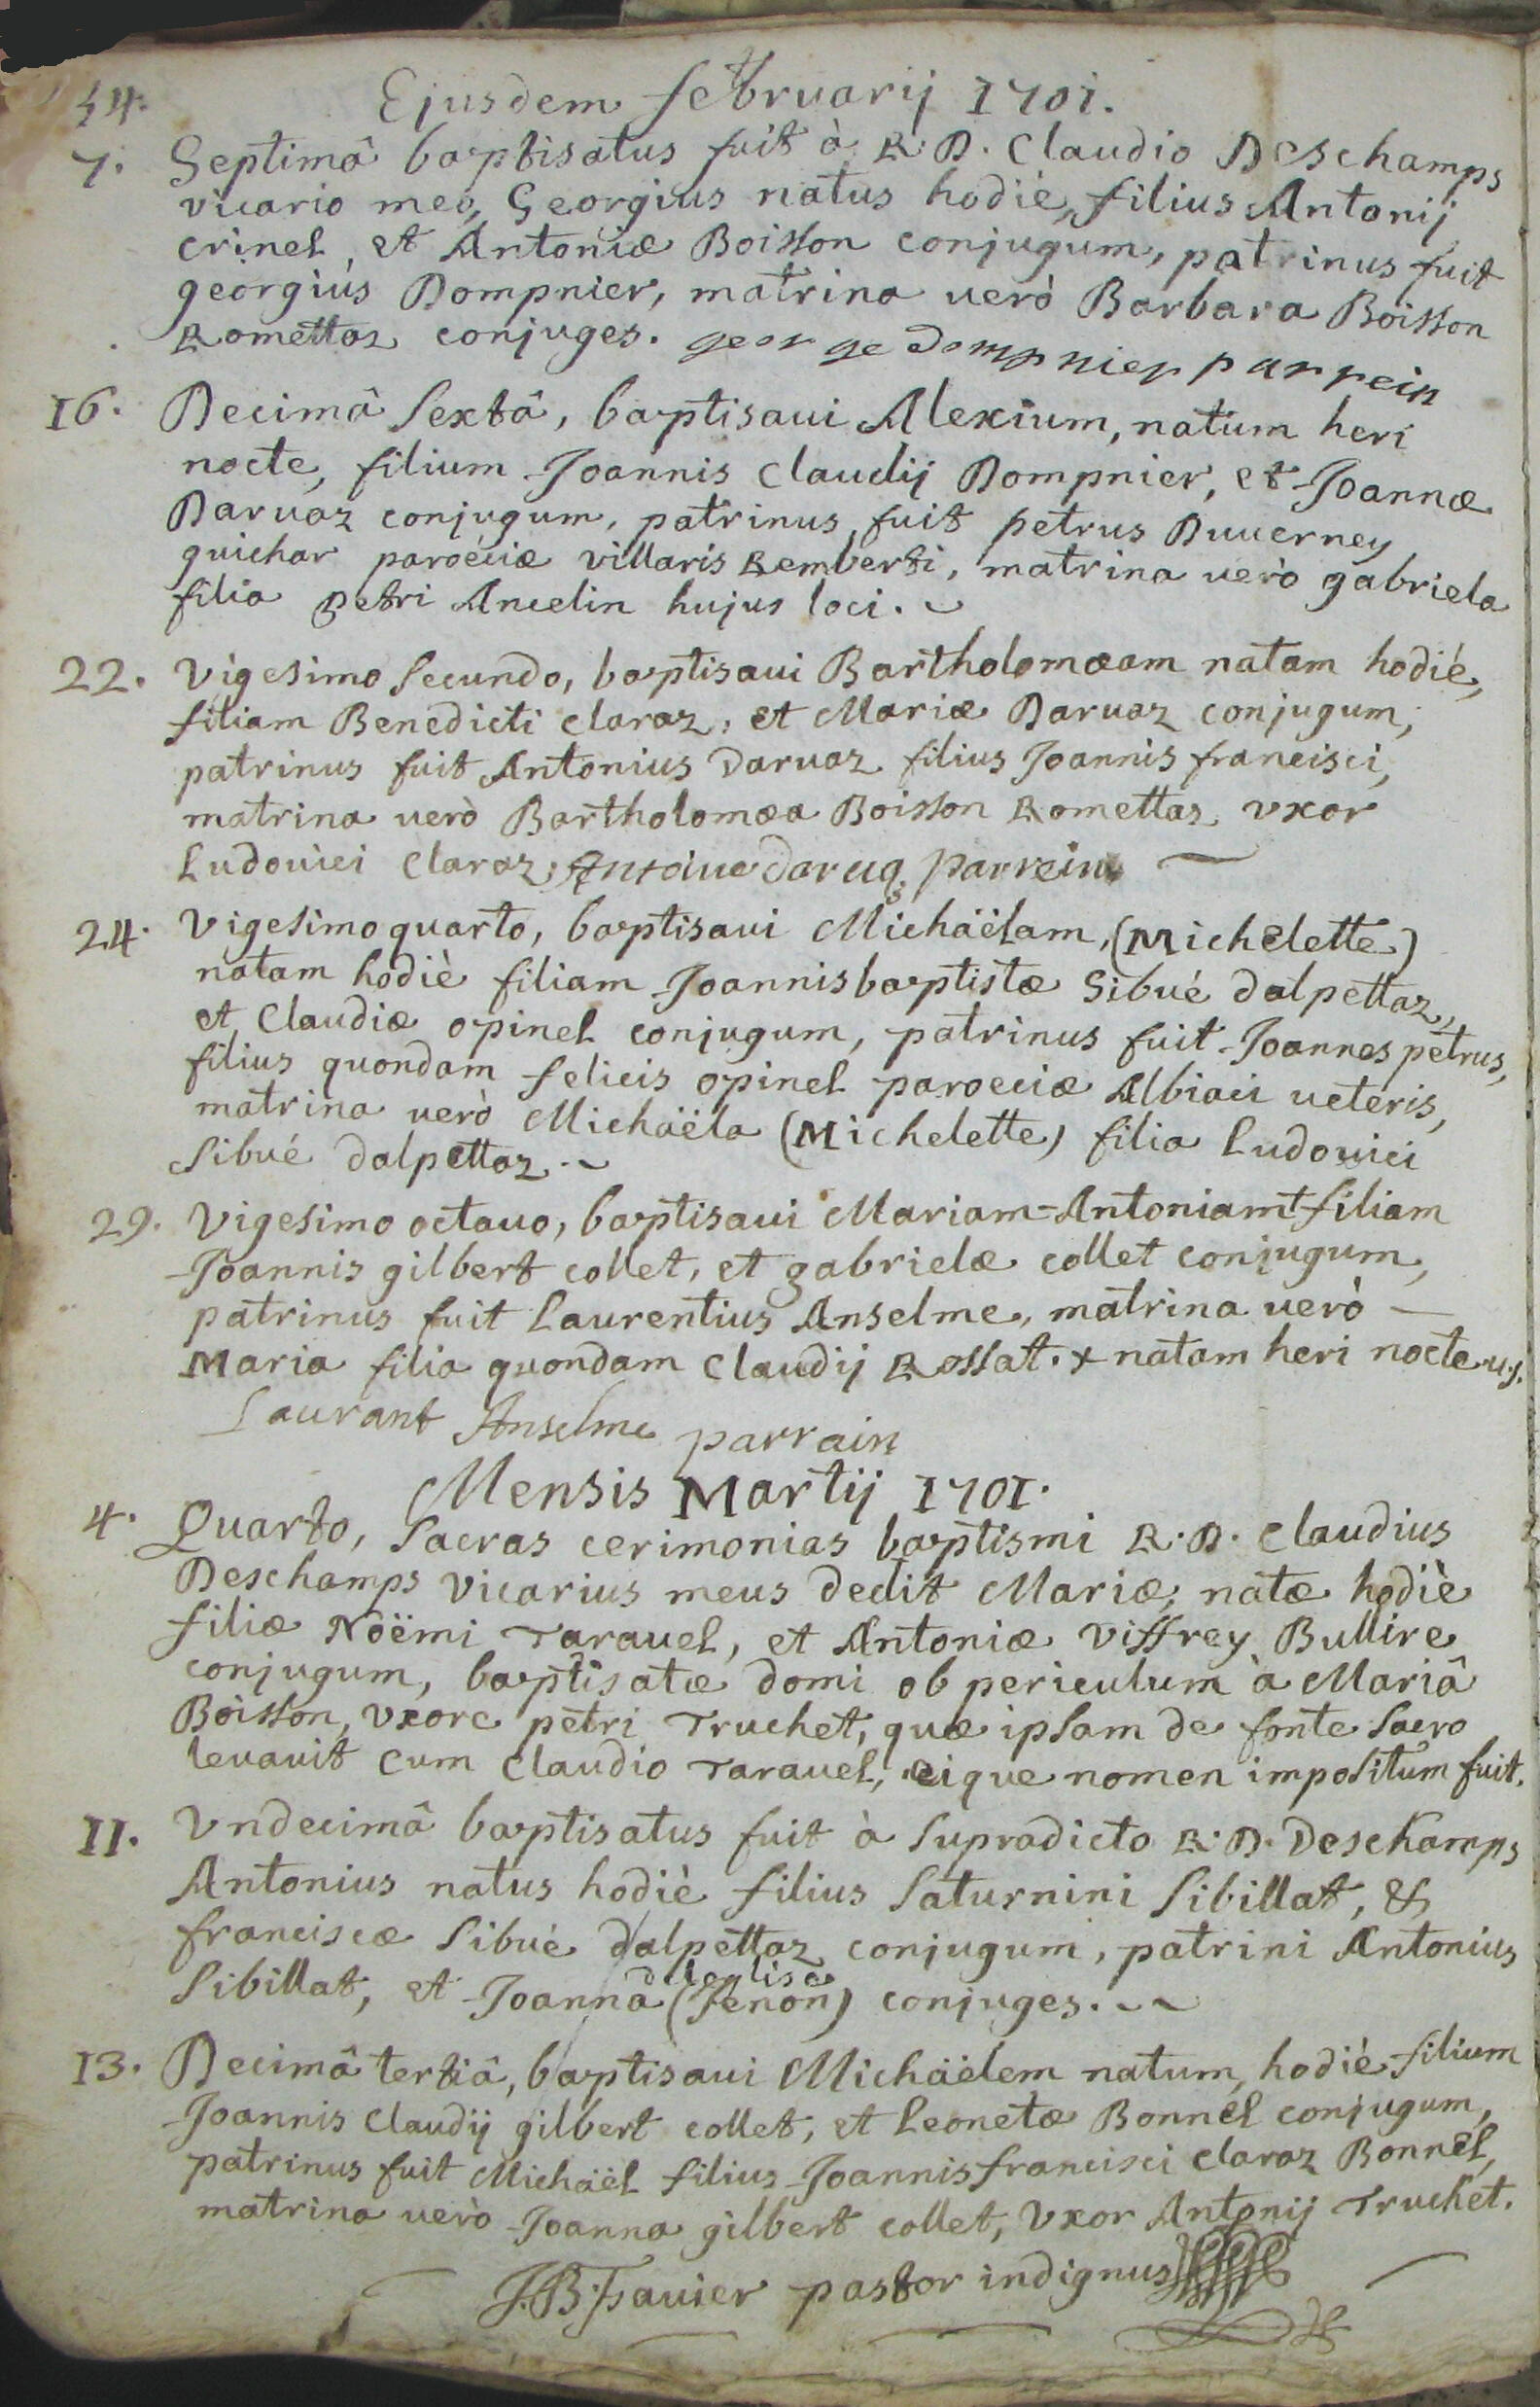 54.
Ejusdem februarij 1701.
7. Septimâ baptisatus fuit à R.D. Claudio Deschamps
vicario meo, Georgius natus hodiè, filius Antonij
crinel, et Antoniæ Boisson conjugum, patrinus fuit
georgius Dompnier, matrina uerò Barbara Boisson
Romettaz conjuges. george dompnier parrein
16. Decimâ sextâ, baptisaui Alexium, natum heri
nocte, filium Joannis Claudij Dompnier, et Joannæ
Daruaz conjugum, patrinus fuit petrus Duuerney
guichar paroeciæ villaris Remberti, matrina uerò gabriela
filia petri Ancelin hujus loci.
22. Vigesimo secundo, baptisaui Bartholomæam natam hodiè,
filiam Benedicti claraz, et Mariæ Daruaz conjugum,
patrinus fuit Antonius daruaz filius Joannis francisci,
matrina uerò Bartholomæa Boisson Romettaz vxor
Ludouici claraz, Antoiue daruaz parrein
24. Vigesimo quarto, baptisaui Michaëlam, (Michelette)
natam hodiè filiam Joannisbaptistæ Sibué dalpettaz,
et Claudiæ opinel conjugum, patrinus fuit Joannes petrus,
filius quondam felicis opinel paroeciæ Albiaci ueteris,
matrina uerò Michaëla (Michelette) filia Ludouici
Sibué dalpettaz.
29. Vigesimo octauo, baptisaui Mariam-Antoniam + filiam
Joannis gilbert collet, et gabrielæ collet conjugum,
patrinus fuit Laurentius Anselme, matrina uerò
Maria filia quondam Claudij Rossat. + natam heri nocte
Laurant Anselme parrain
Mensis Martij 1701.
4. Quarto, sacras cerimonias baptismi R.D. Claudius
Deschamps vicarius meus dedit Mariæ, natæ hodiè
filiæ Noëmi Tarauel, et Antoniæ Viffrey Bullire
conjugum, baptisatæ domi ob periculum à Mariâ
Boisson, vxore petri Truchet, quæ ipsam de fonte sacro
leuauit cum Claudio Tarauel, eique nomen impositum fuit.
11. Vndecimâ baptisatus fuit à supradicto R.D. Deschamps
Antonius natus hodiè filius Saturnini Sibillat, &
franciscæ Sibué dalpettaz conjugum, patrini Antonius
deleglise
Sibillat, et Joanna (Jenon) conjuges.
13. Decimâ tertiâ, baptisaui Michaëlem natum, hodiè filium
Joannis Claudij gilbert collet, et Leonetæ Bonnel conjugum,
patrinus fuit Michaël filius Joannis francisci claraz Bonnel,
matrina uerò Joanna gilbert collet, Vxor Antonij Truchet.
J.B. Fauier pastor indignus